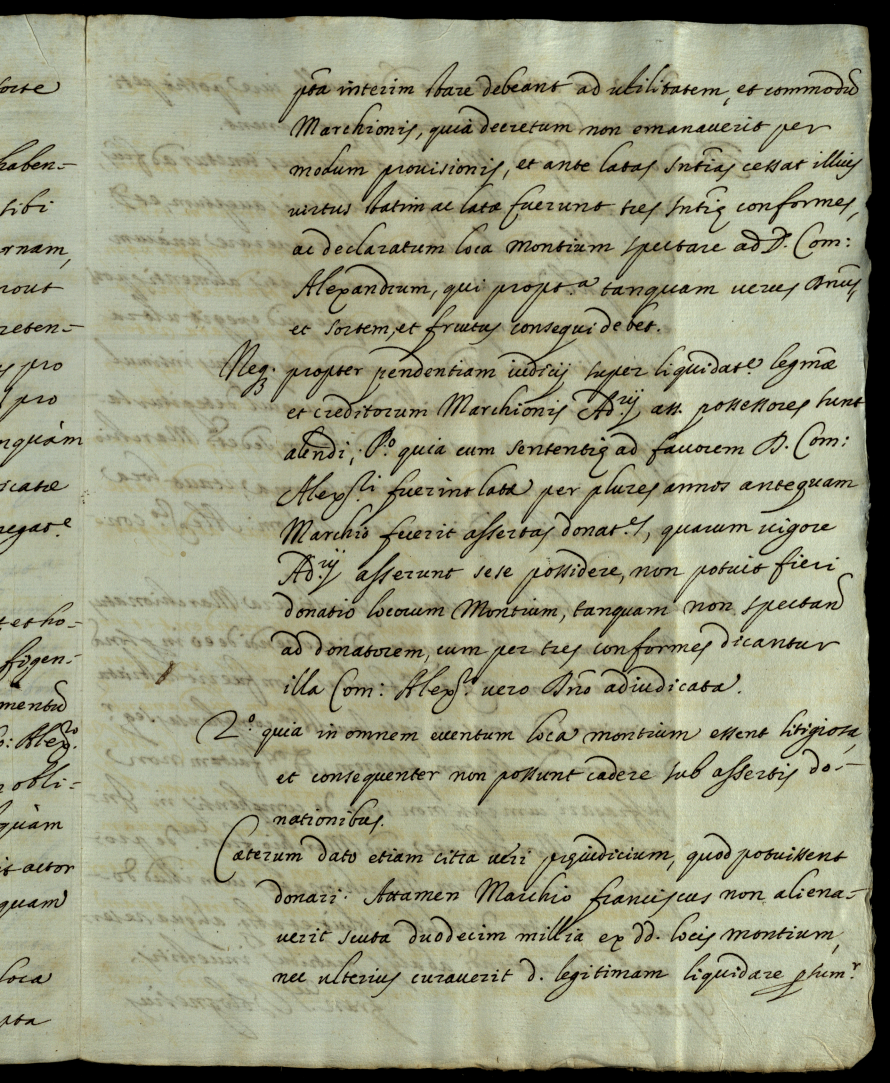 forte
haben=
sibi
rnam,
rout
reten=
pro
pro
nquàm
icatæ
negat.e
t et ho=
figen=
mentũ
Alex.ro
obli=
quàm
it actor
quam
loca
pta
pta interim stare debeant ad utilitatem, et commodũ
Marchionis, quia decretum non emanaverit per
modum provisionis, et ante latas sntias cessat illius
virtus statim ac latæ fuerunt tres sntię conformes,
ac declaratum loca montium spectare ad D. Com:
Alexandrum, qui propt.a tanquam verus Dnus,
et sortem, et fructus consequi debet.
Neq. propter pendentiam iudicij super liquidat.e legmæ
et creditorum Marchionis Ad.rij ass. possessores sunt
alendi, P.o quia cum sententię ad favorem D. Com:
Alex.ri fuerint latæ per plures annos antequam
Marchio fecerit assertas donat.es, quarum vigore
Ad.rij asserunt sese possidere, non potuit fieri
donatio locorum Montium, tanquam non spectañ
ad donatorem, cum per tres conformes dicantur
illa Com: Alex.ro vero Dño adiudicata.
2.o quia in omnem eventum loca montium essent litigiosa,
et consequenter non possunt cadere sub assertis do=
nationibus.
Cæterum dato etiam citra veri pręiudicium, quod potuissent
donari. Attamen Marchio franciscus non aliena=
verit scuta duodecim millia ex dd. locis montium,
nec ulterius curaverit d. legitimam liquidare